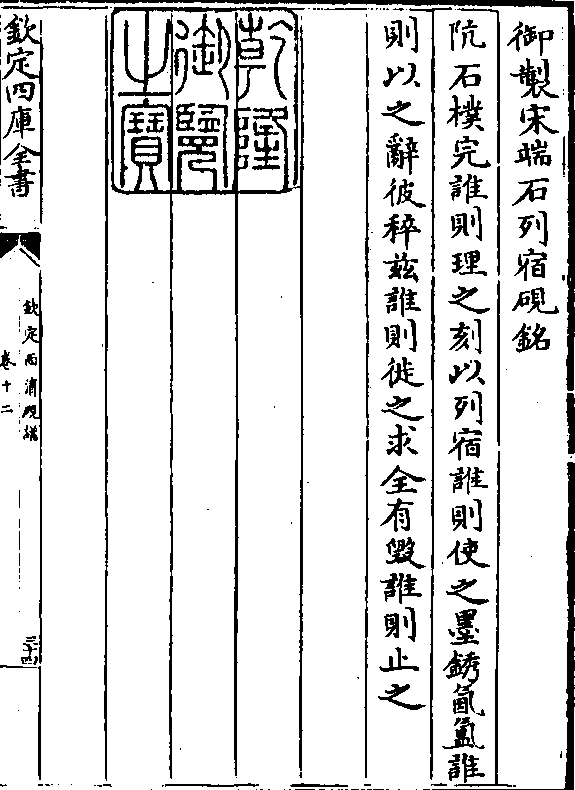 御製宋端石列宿硯銘
阬石樸完誰則理之刻以列宿誰則使之墨銹氤氳誰
則以之辭彼稡茲誰則徙之求全有毀誰則止之
乾隆
御覽
之寶
欽定四庫全書
欽定西清硯譜
卷十二
三十四